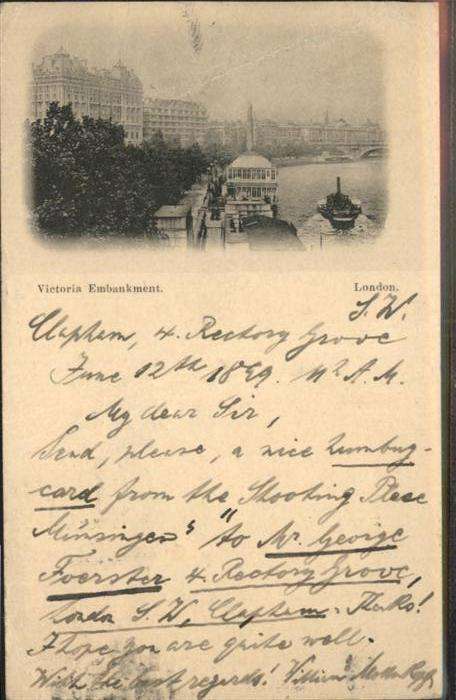 Victoria Embankment. London.
S. W.
Clapham, 4. Rectory Grove
June 12th 1899. A. M.
My dear Sir,
Send, please, a nice humbug-
card from the Shooting Place
Münsingen" to Mr. George
Foerster 4. Rectory Grove,
London S. W, Clapham. Thanks!
I hope you are quite well.
With the best regards!